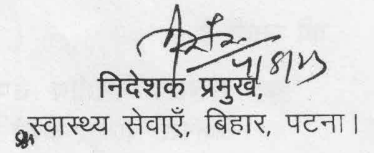 4/8/23
निदेशक प्रमुख,
स्वास्थ्य सेवाएँ, बिहार, पटना।